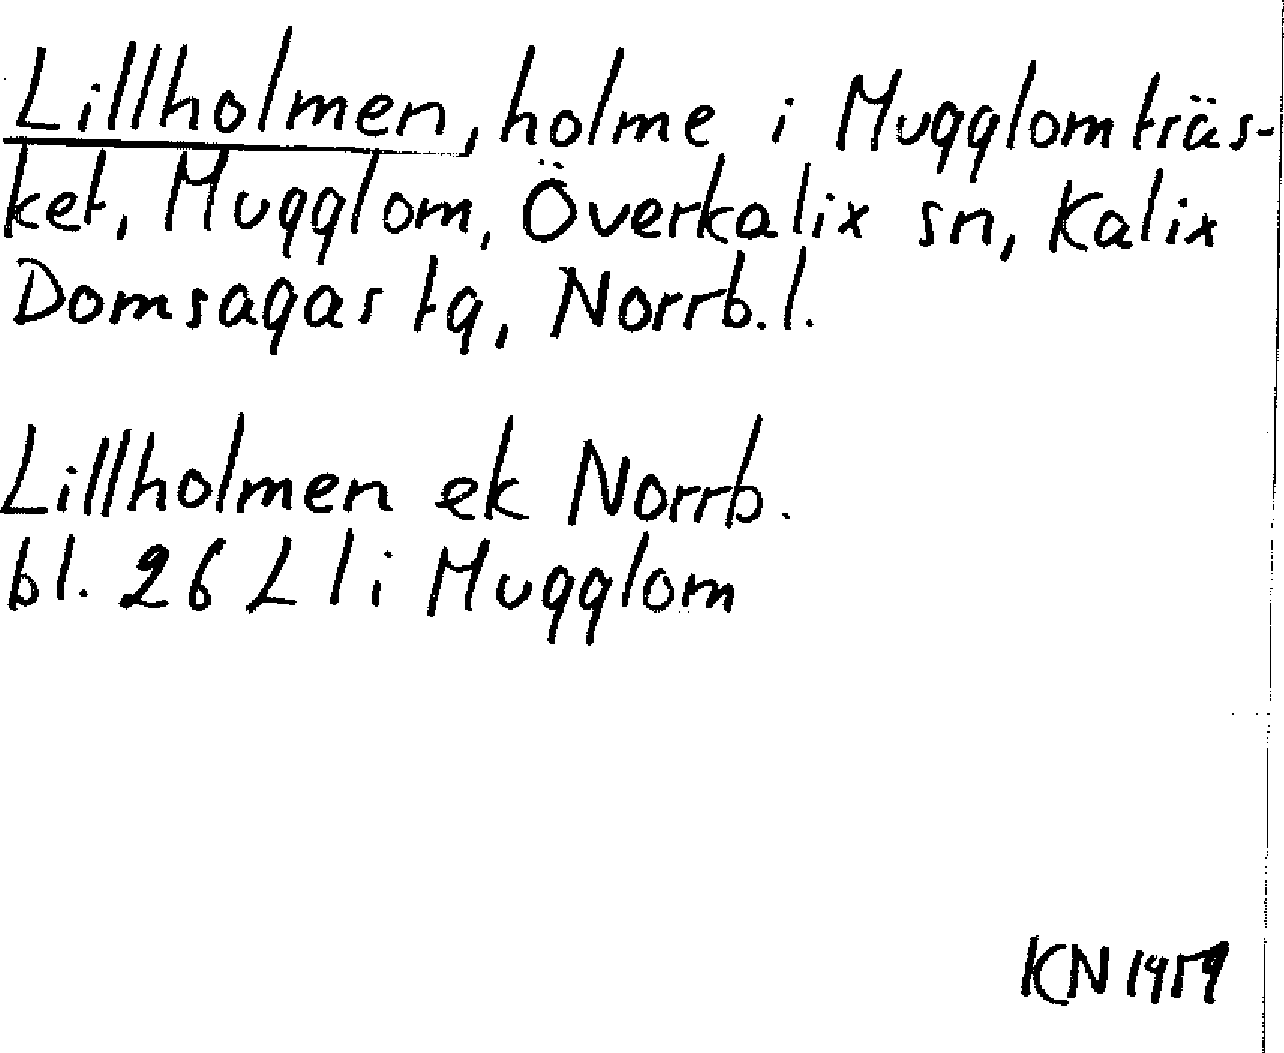 Lillholmen, holme i Mugglomträs-
ket, Mugglom, Överkalix sn, Kalix
Domsagas tg, Norrb. l.
Lillholmen ek Norrb.
bl. 26 L l i Mugglom
KN 1959